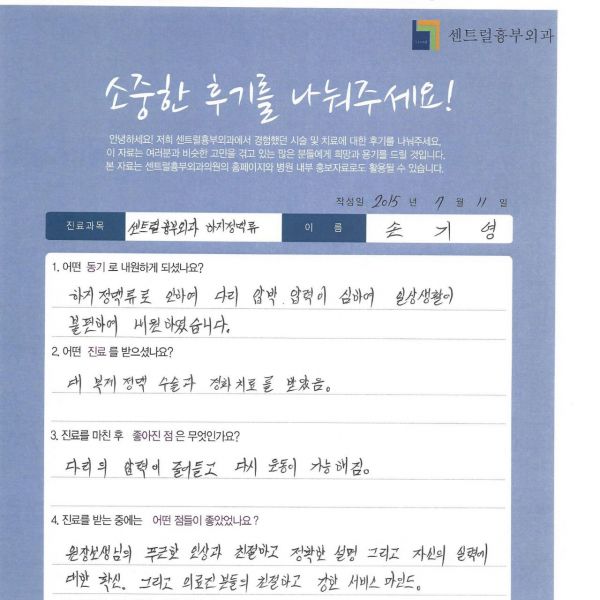 센트럴흉부외과
소중한 후기를 나눠주세요!
안녕하세요! 저희 센트럴흉부외과에서 경험했던 시술 및 치료에 대한 후기를 나눠주세요.
이 자료는 여러분과 비슷한 고민을 겪고 있는 많은 분들에게 희망과 용기를 드릴 것입니다.
본 자료는 센트럴흉부외과의원의 홈페이지와 병원 내부 홍보자료로도 활용될 수 있습니다.
작성일 2015 년 7 월 11 일
진료과목 센트럴흉부외과 하지정맥류 이 름 손 기 영
1. 어떤 동기 로 내원하게 되셨나요?
하지정맥류로 인하여 다리 압박. 압력이 심하여 일상생활이
불편하여 내원하였습니다.
2. 어떤 진료 를 받으셨나요?
대 복제 정맥 수술과 경화치료를 받았음.
3. 진료를 마친 후 좋아진 점 은 무엇인가요?
다리의 압력이 줄어들고 다시 운동이 가능해짐.
4. 진료를 받는 중에는 어떤 점들이 좋았었나요 ?
원장선생님의 푸근한 인상과 친절하고 정확한 설명 그리고 자신의 실력에
대한 확신. 그리고 의료진분들의 친절하고 강한 서비스 마인드.